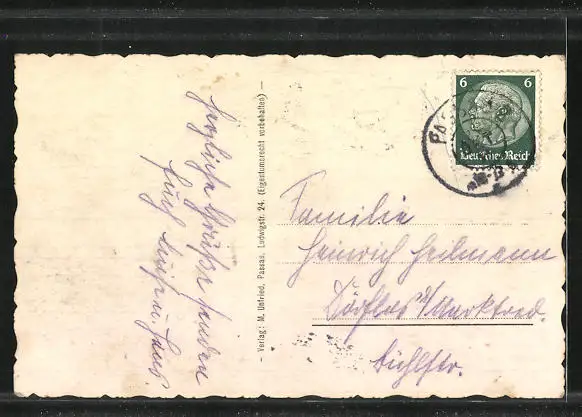 herzliche Grüße senden
Euch
- Verlag: M. Unfried, Passau, Ludwigstr. 24. (Eigentumsrecht vorbehalten) -
6 6
Deutsches Reich
Familie
Heinrich Heilmann
Dörflas b/Marktred.